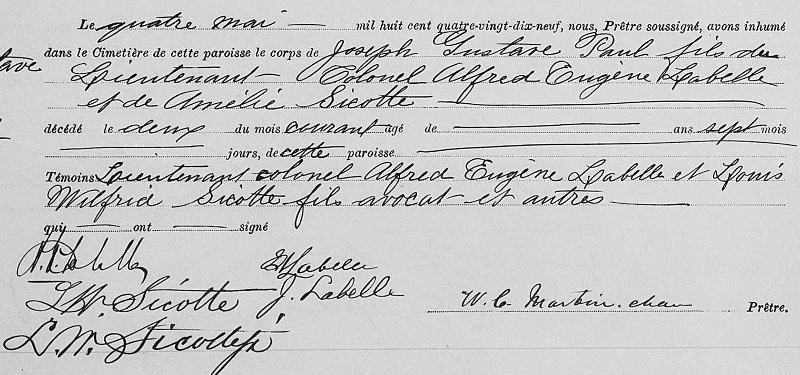 Le quatre mai — mil huit cent quatre-vingt-dix-neuf, nous, Prêtre soussigné, avons inhumé
dans le Cimetière de cette paroisse le corps de Joseph Gustave Paul fils du
tave Lieutenant-Colonel Alfred Eugène Labelle
et de Amélie Sicotte
décédé le deux du mois courant agé de — ans sept mois
— jours, de cette paroisse
Témoins Lieutenant colonel Alfred Eugène Labelle et Louis
Wilfrid Sicotte fils avocat et autres —
qui — ont — signé
A. E. Labelle Labelle
L. W. Sicotte J. Labelle W. C. Martin. Prêtre.
L. W. Sicotte